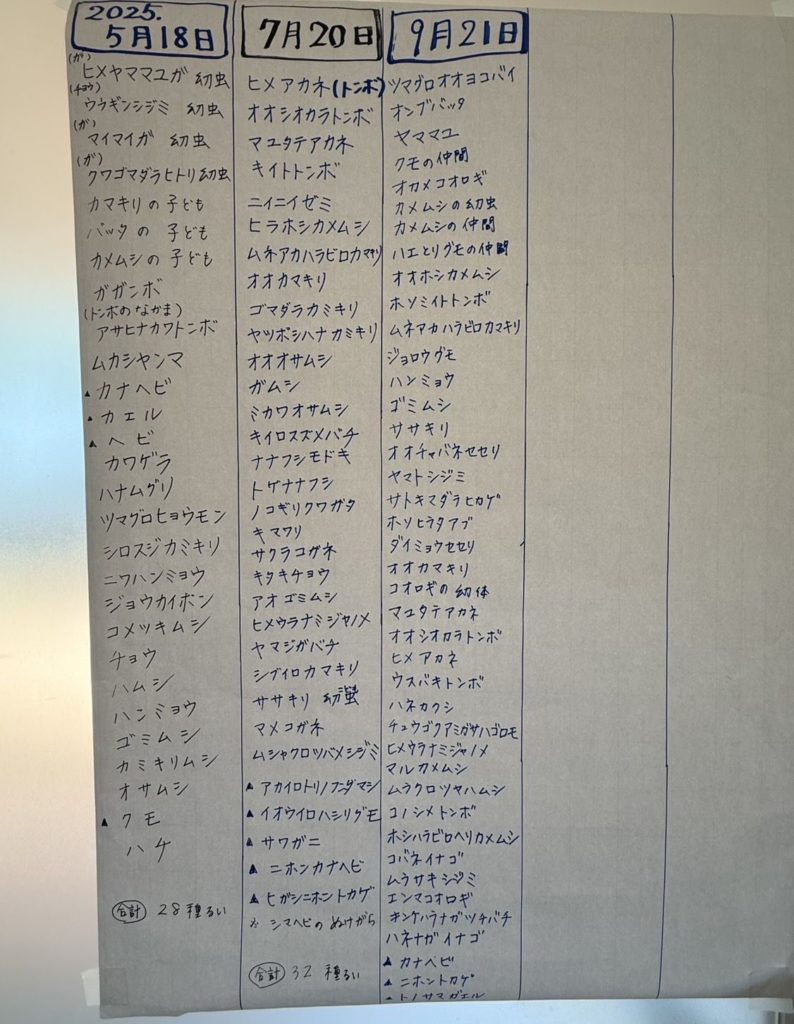 2025.
5月18日
(ガ)
ヒメヤママユガ 幼虫
(チョウ)
ウラギンシジミ 幼虫
(ガ)
マイマイガ 幼虫
(ガ)
クワゴマダラヒトリ幼虫
カマキリの子ども
バッタの子ども
カメムシの子ども
ガガンボ
(トンボのなかま)
アサヒナカワトンボ
ムカシヤンマ
▲カナヘビ
▲カエル
▲ヘビ
カワゲラ
ハナムグリ
ツマグロヒョウモン
シロスジカミキリ
ニワハンミョウ
ジョウカイボン
コメツキムシ
チョウ
ハムシ
ハンミョウ
ゴミムシ
カミキリムシ
オサムシ
▲クモ
ハチ
合計 28種るい
7月20日
ヒメアカネ(トンボ)
オオシオカラトンボ
マユタテアカネ
キイトトンボ
ニイニイゼミ
ヒラホシカメムシ
ムネアカハラビロカマキリ
オオカマキリ
ゴマダラカミキリ
ヤツボシハナカミキリ
オオオサムシ
ガムシ
ミカワオサムシ
キイロスズメバチ
ナナフシモドキ
トゲナナフシ
ノコギリクワガタ
キマワリ
サクラコガネ
キタキチョウ
アオゴミムシ
ヒメウラナミジャノメ
ヤマジガバチ
シブイロカマキリ
ササキリ 幼虫
マメコガネ
ムシャクロツバメシジミ
▲アカイロトリノフンダマシ
▲イオウイロハシリグモ
▲サワガニ
▲ニホンカナヘビ
▲ヒガシニホントカゲ
※シマヘビのぬけがら
合計 32種るい
9月21日
ツマグロオオヨコバイ
オンブバッタ
ヤママユ
クモの仲間
オカメコオロギ
カメムシの幼虫
カメムシの仲間
ハエとりグモの仲間
オオホシカメムシ
ホソミイトトンボ
ムネアカハラビロカマキリ
ジョロウグモ
ハンミョウ
ゴミムシ
ササキリ
オオチャバネセセリ
ヤマトシジミ
サトキマダラヒカゲ
ホソヒラタアブ
ダイミョウセセリ
オオカマキリ
コオロギの幼体
マユタテアカネ
オオシオカラトンボ
ヒメアカネ
ウスバキトンボ
ハネカクシ
チュウゴクアミガサハゴロモ
ヒメウラナミジャノメ
マルカメムシ
ムラクロツヤハムシ
コノシメトンボ
ホシハラビロヘリカメムシ
コバネイナゴ
ムラサキシジミ
エンマコオロギ
キンケハラナガツチバチ
ハネナガイナゴ
▲カナヘビ
▲ニホントカゲ
▲トノサマガエル